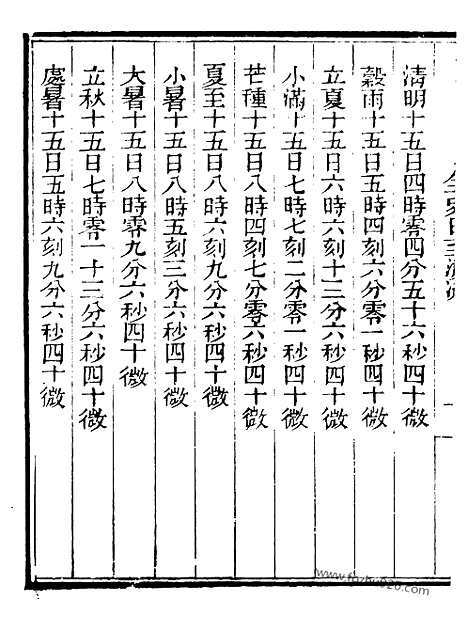 清明十五日四時零四分五十六秒四十微
穀雨十五日五時六分零一秒四十微
立夏十五日六時四刻十三分六秒四十微
小滿十五日七時七刻二分零一秒四十微
芒種十五日八時四刻七分零六秒四十微
夏至十五日八時六刻九分六秒四十微
小暑十五日八時五刻三分六秒四十微
大暑十五日八時零九分六秒四十微
立秋十五日七時零一十三分六秒四十微
處暑十五日五時六刻九分六秒四十微